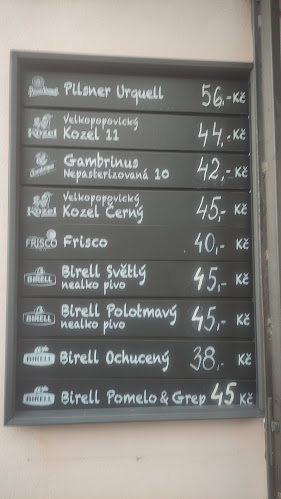 Pilsner Urquell 56,- Kč
Velkopopovický
Kozel 11 44,- Kč
Gambrinus
Nepasterizovaná 10 42,- Kč
Velkopopovický
Kozel Černý 45,- Kč
FRISCO Frisco 40,- Kč
BIRELL Birell Světlý
nealko pivo 45,- Kč
BIRELL Birell Polotmavý
nealko pivo 45,- Kč
BIRELL Birell Ochucený 38,- Kč
BIRELL Birell Pomelo & Grep 45 Kč